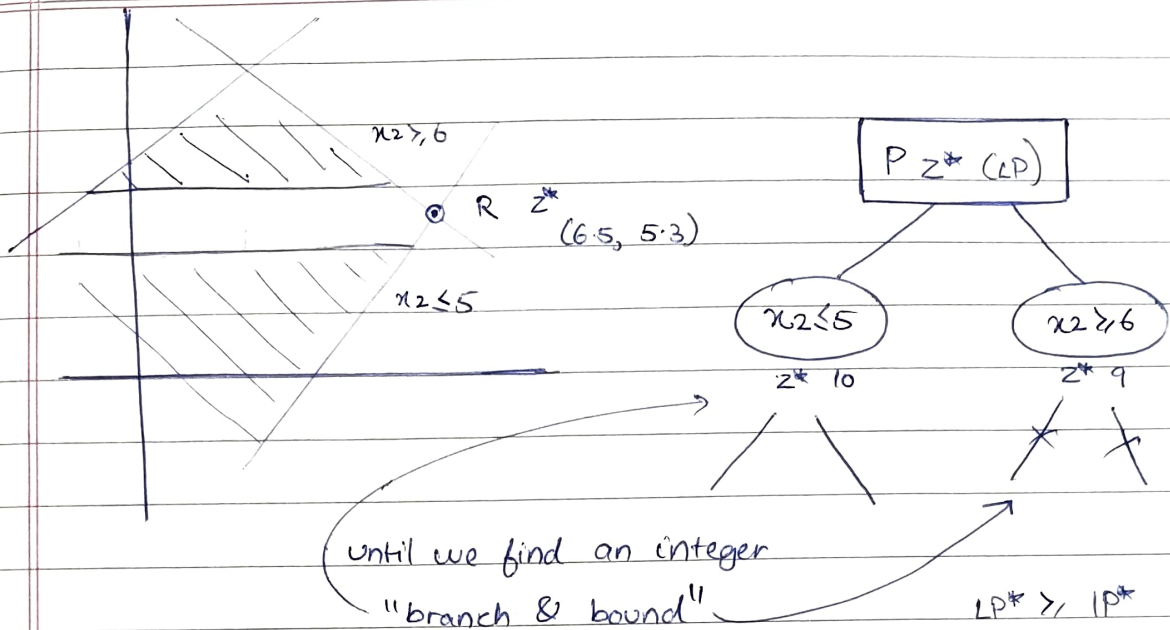 x2 ≥ 6
R z*
(6.5, 5.3)
x2 ≤ 5
P z* (LP)
x2 ≤ 5
x2 ≥ 6
z* 10
z* 9
until we find an integer
"branch & bound"
LP* ≥ IP*